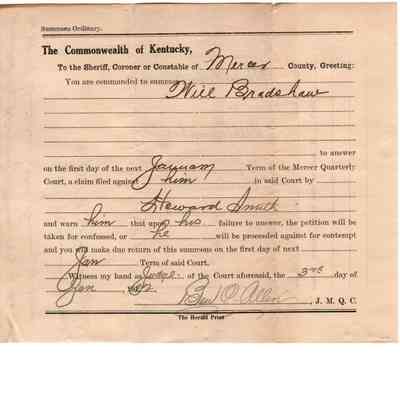 Summons Ordinary.
The Commonwealth of Kentucky,
To the Sheriff, Coroner or Constable of Mercer County, Greeting:
You are commanded to summon
Will Bradshaw
to answer
on the first day of the next January Term of the Mercer Quarterly
Court, a claim filed against him in said Court by
Howard Smith
and warn him that upon his failure to answer, the petition will be
taken for confessed, or he will be proceeded against for contempt
and you will make due return of this summons on the first day of next
Jan Term of said Court.
Witness my hand as Judge of the Court aforesaid, the 3rd day of
Jan
Ben O Allin, J. M. Q. C.
The Herald Print